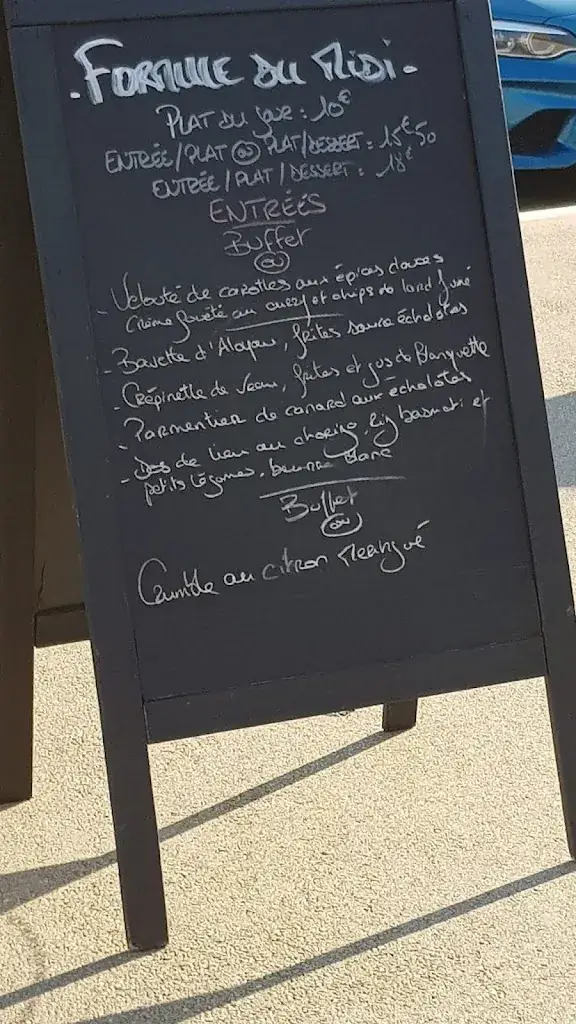 . FORMULE DU MIDI .
PLAT DU JOUR : 10€
ENTRÉE/PLAT OU PLAT/DESSERT : 15€50
ENTRÉE/PLAT/DESSERT : 18€
ENTRÉES
Buffet
OU
- Velouté de carottes aux épices douces
Crème fouetté au curry et chips de lard fumé
- Bavette d'Aloyau, frites sauce échalotes
- Crépinette de veau, frites et jus de Blanquette
- Parmentier de canard aux échalotes
- Dos de lieu au chorizo, Riz basmati et
petits légumes, beurre Blanc
Buffet
OU
Crumble au citron Meringué